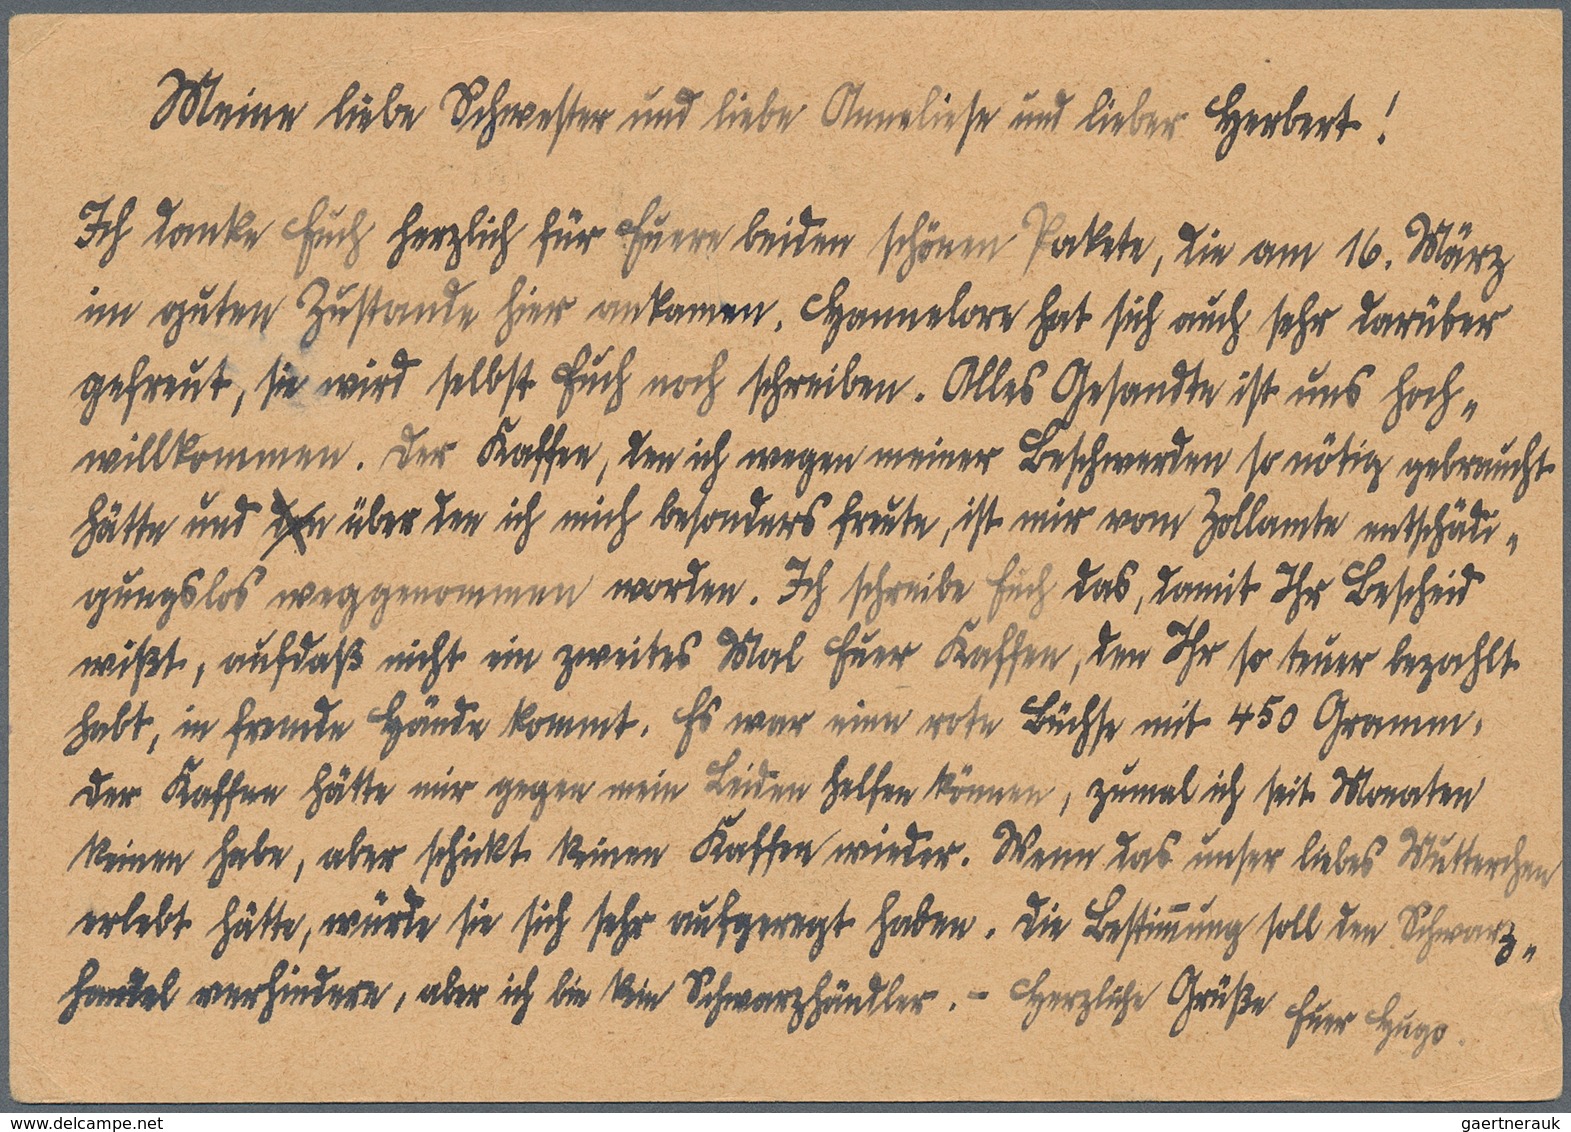 Meine liebe Schwester und liebe Anneliese und lieber Herbert!
Ich danke Euch herzlich für Euere beiden schönen Pakete, die am 16. März
im guten Zustande hier ankamen. Hannelore hat sich auch sehr darüber
gefreut, sie wird selbst Euch noch schreiben. Alles Gesandte ist uns hoch-
willkommen. Der Kaffee, den ich wegen meiner Beschwerden so nötig gebraucht
hätte und den über den ich mich besonders freute, ist mir vom Zollamte entschädi-
gungslos weggenommen worden. Ich schreibe Euch das, damit Ihr Bescheid
wißt, aufdaß nicht ein zweites Mal Euer Kaffee, den Ihr so teuer bezahlt
habt, in fremde Hände kommt. Es war eine rote Büchse mit 450 Gramm.
Der Kaffee hätte mir gegen mein Leiden helfen können, zumal ich seit Monaten
keinen habe, aber schickt keinen Kaffee wieder. Wenn das unser liebes Mutterchen
erlebt hätte, würde sie sich sehr aufgeregt haben. Die Bestimmung soll den Schwarz-
handel verhindern, aber ich bin kein Schwarzhändler. - Herzliche Grüße Euer Hugo.
gaertnerauk